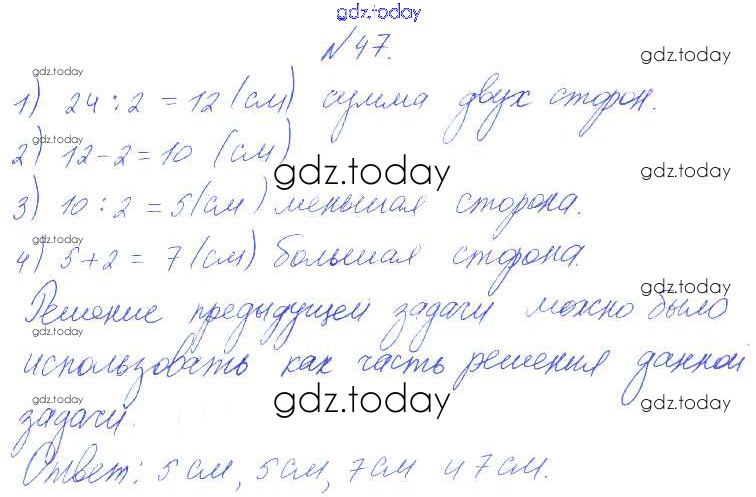 gdz.today
№47.
gdz.today
gdz.today
1) 24:2=12 (см) сумма двух сторон.
gdz.today
2) 12-2=10 (см)
gdz.today
gdz.today
3) 10:2=5(см) меньшая сторона.
gdz.today
4) 5+2= 7(см) большая сторона.
gdz.today
Решение предыдущей задачи можно было
gdz.today
использовать как часть решения данной
gdz.today
gdz.today
gdz.today
задачи.
Ответ: 5 см, 5см, 7см и 7см.